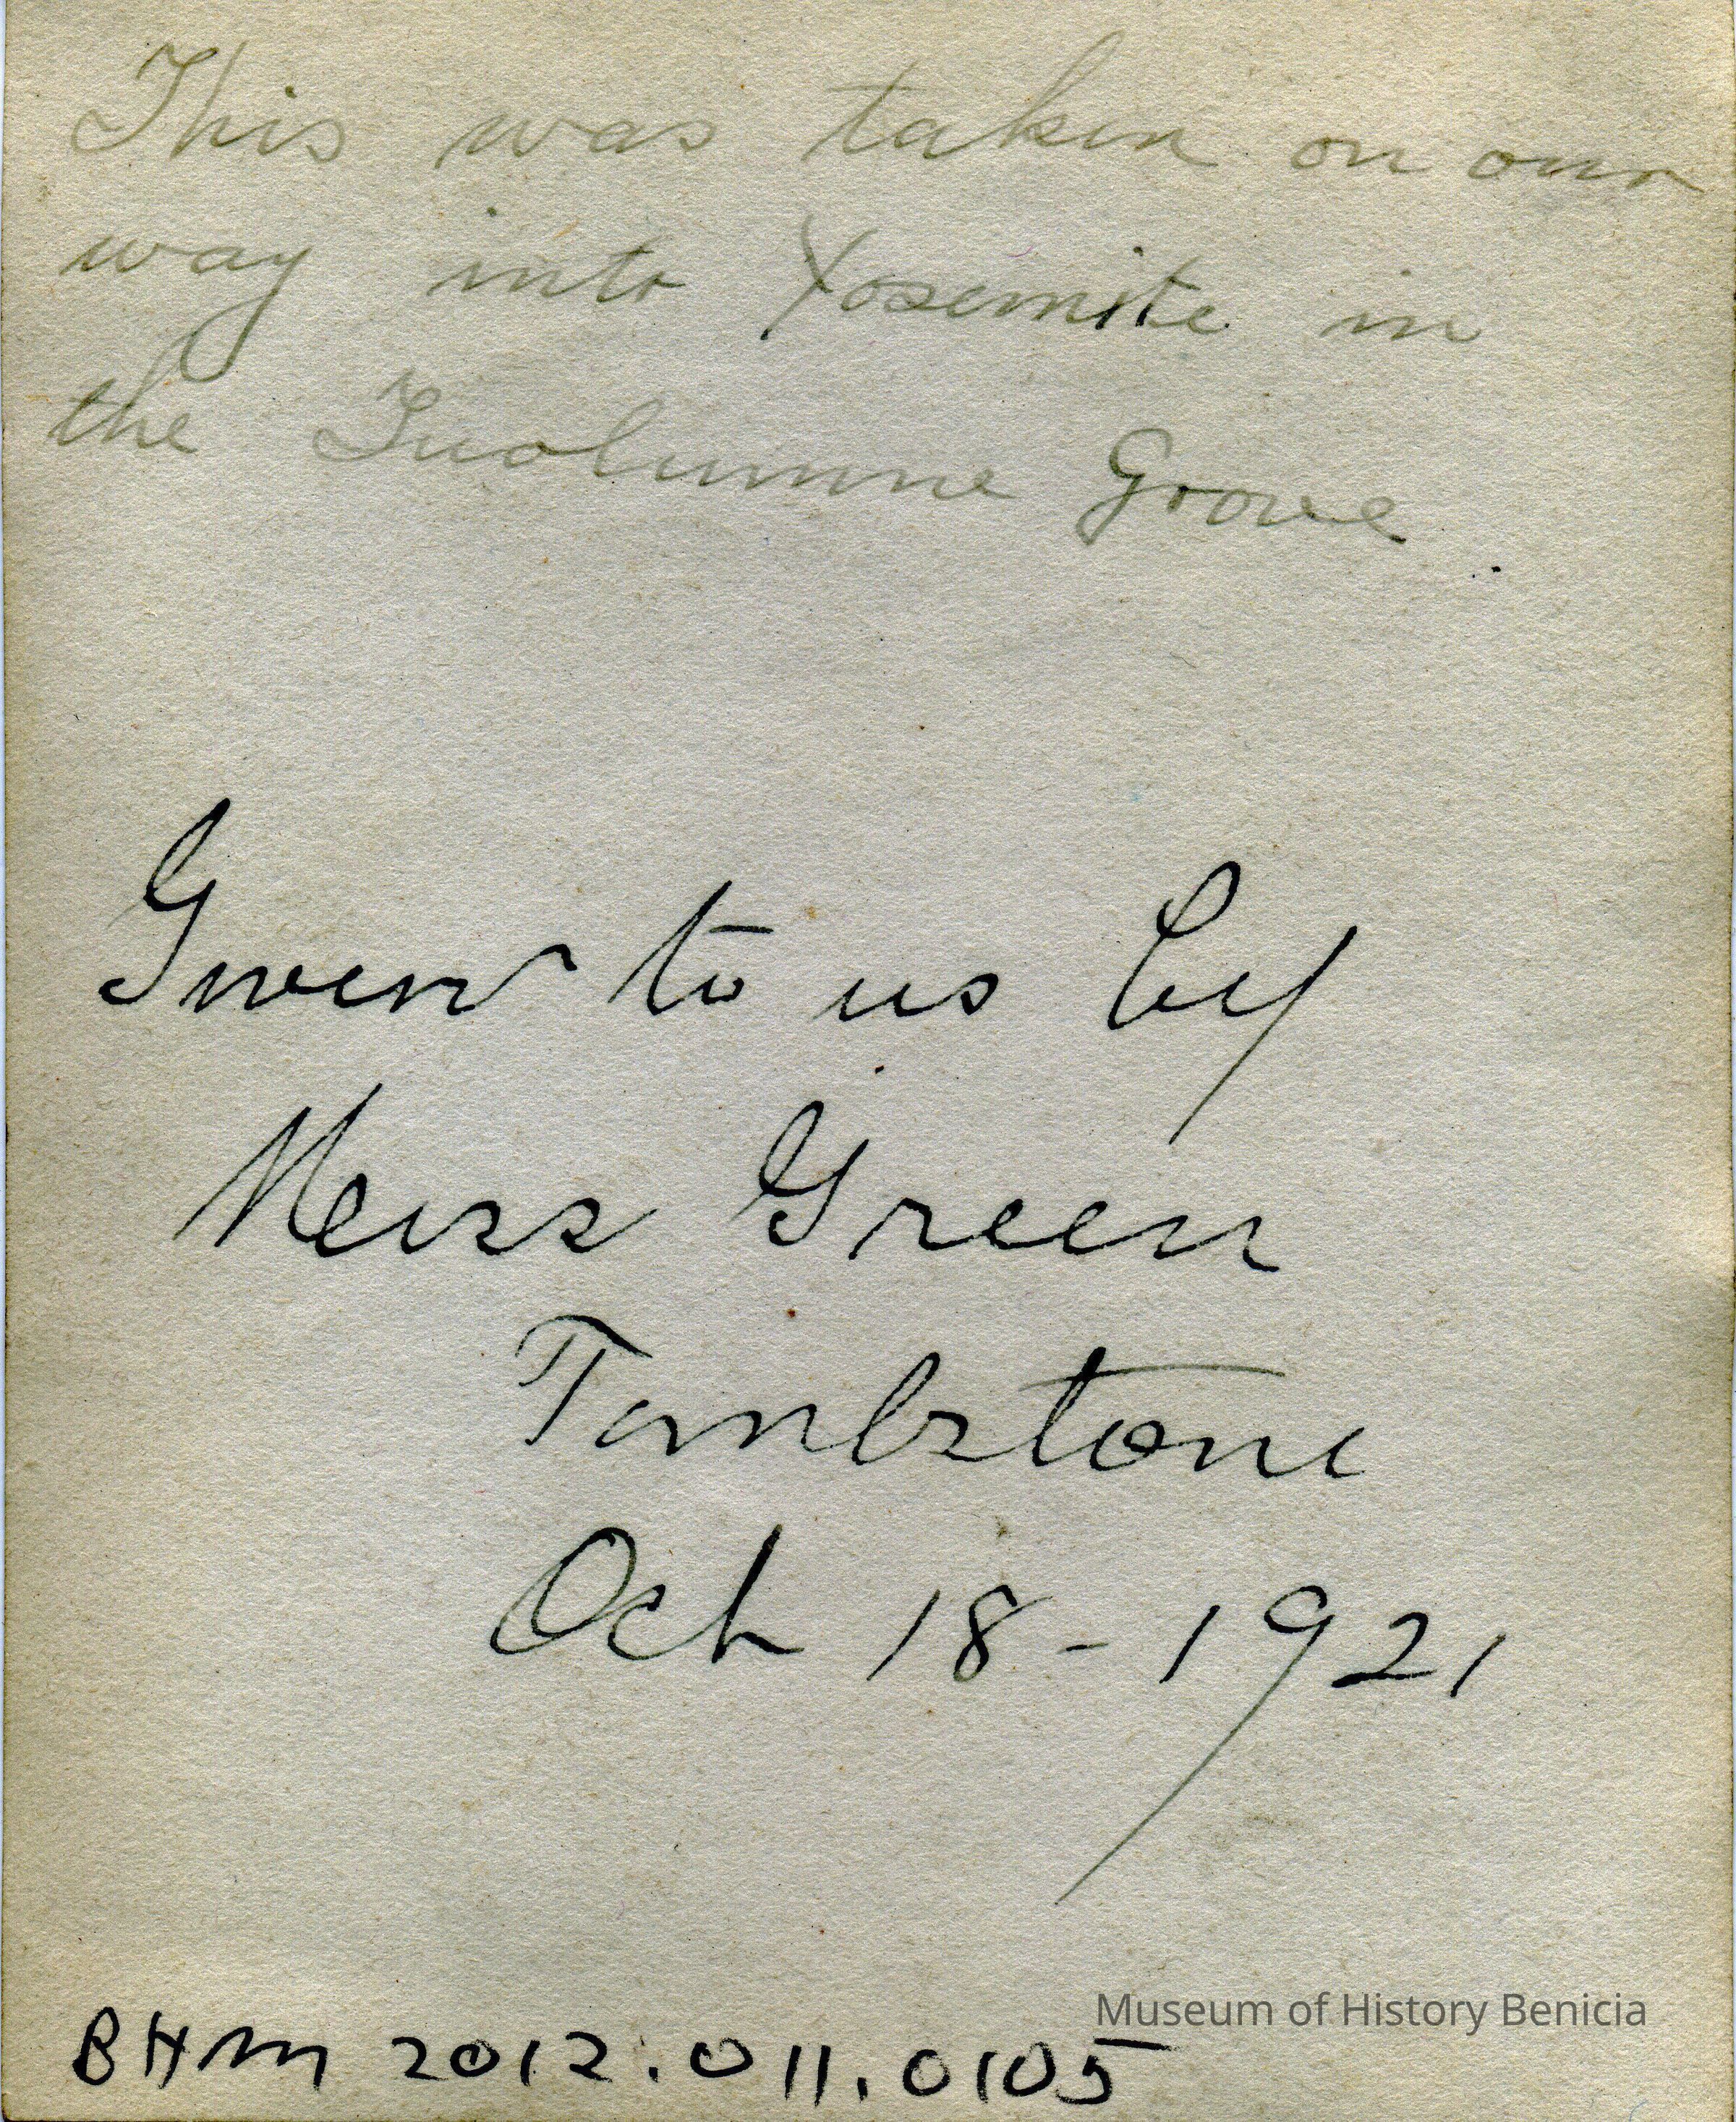 This was taken on our
way into Yosemite in
the Tuolumne Grove.
Given to us by
Miss Green
Tombstone
Oct 18-1921
Museum of History Benicia
BHM 2012.011.0105